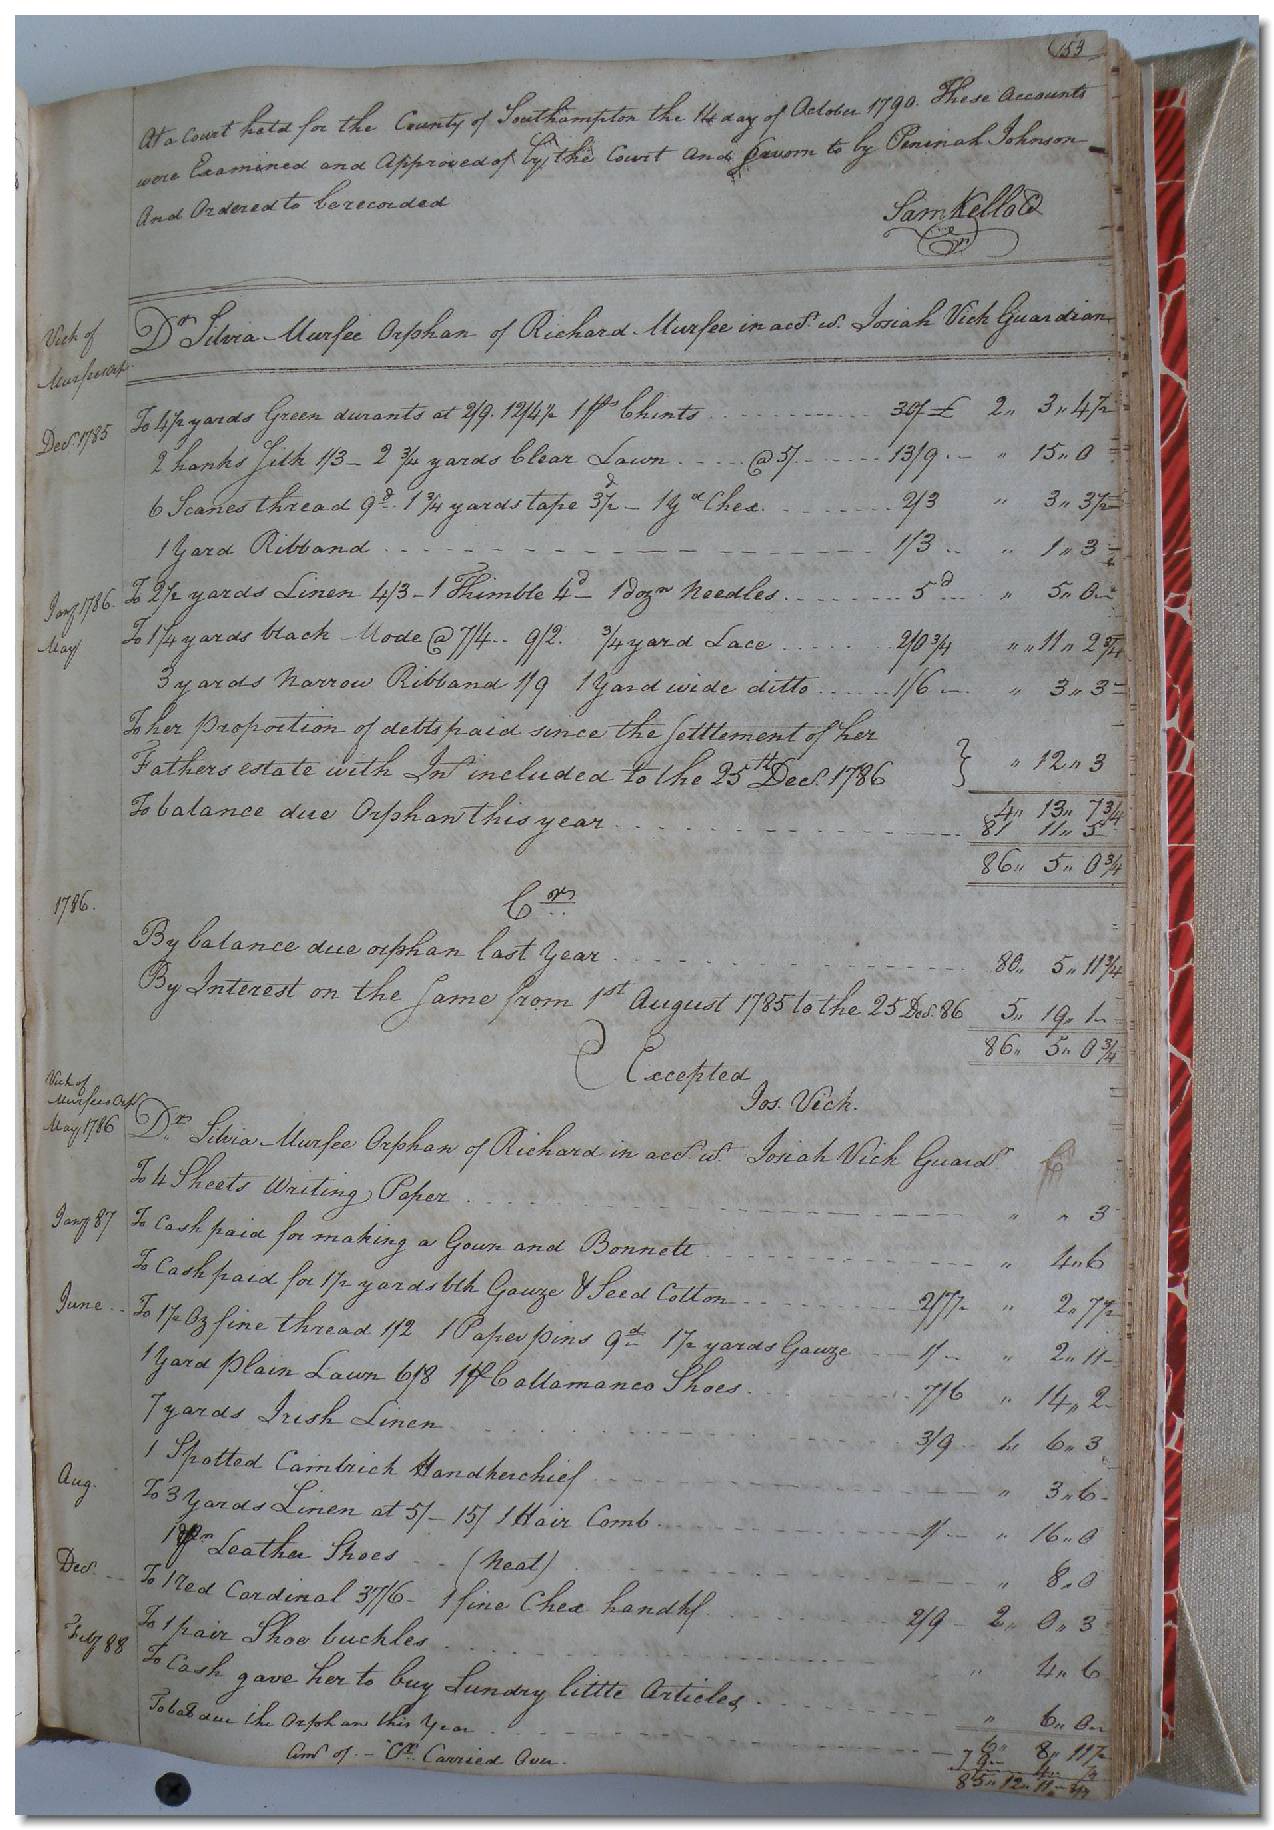 153
At a Court held for the County of Southampton the 14 day of October 1790. These Accounts
were Examined and Approved of by the Court and Sworn to by Peninah Johnson
And Ordered to be recorded
Sam Kello Cl
Vick of
Murfees Orp
Dr Silvia Murfee Orphan of Richard Murfee in acct. wt. Josiah Vick Guardian
Decr. 1785 To 4½ yards Green durants at 2/9. 12/4½ 1 ps Chints 30/ £ 2 〃 3 〃 4½
2 hanks Silk 1/3 - 2 ¾ yards Clear Lawn @ 5/ 13/9 〃 15 〃 0
6 Scanes thread 9d. 1 ¾ yards tape 3½d - 1 yd Chex 2/3 〃 3 〃 3½
1 Yard Ribband 1/3 〃 1 〃 3
Jany 1786. To 2½ yards Linen 4/3 - 1 Thimble 4d - 1 dozn Needles 5d 〃 5 〃 0
May To 1¼ yards black Mode @ 7/4 .. 9/2. ¾ yard Lace 2/0 ¾ 〃 11 〃 2 ¾
3 yards Narrow Ribband 1/9 1 Yard wide ditto 1/6 〃 3 〃 3
To her Proportion of debts paid since the Settlement of her
Fathers estate with Int included to the 25th Decr. 1786 〃 12 〃 3
4 〃 13 〃 7 ¾
To balance due Orphan this year 81 11 〃 5
86 〃 5 〃 0 ¾
1786. Cr
By balance due orphan last Year 80 〃 5 〃 11 ¾
By Interest on the Same from 1st August 1785 to the 25 Decr. 86 5 〃 19 〃 1
86 〃 5 〃 0 ¾
Excepted
Jos. Vick.
Vick of
Murfees Orp
Dr. Silvia Murfee Orphan of Richard in acct wt. Josiah Vick Guard
May 1786 To 4 Sheets Writing Paper 〃 〃 3
Jany 87 To Cash paid for making a Gown and Bonnett 〃 4 〃 6
To Cash paid for 1½ yards blk Gauze & Seed Cotton 2/7½ 〃 2 〃 7½
June To 1½ Oz fine thread 1/2 1 Paper pins 9d 1½ yards Gauze 1/ 〃 2 〃 11
1 Yard Plain Lawn 6/8 1 pr Callamanco Shoes 7/6 〃 14 〃 2
7 yards Irish Linen 3/9 6 〃 3
1 Spotted Cambrick Handkerchief 〃 3 〃 6
Aug. To 3 Yards Linen at 5/ - 15/ 1 Hair Comb 1/ 〃 16 〃 0
1 pr Leather Shoes (Neat) 〃 8 〃 0
Decr. To 1 red Cardinal 37/6 - 1 fine Chex handkf 2/9 2 〃 0 〃 3
Feby 88 To 1 pair Shoe buckles 〃 4 〃 6
To Cash gave her to buy Sundry little Articles 〃 6 〃 0
6 〃 8 〃 11½
To bal due the Orphan this Year
Amt of Cr. Carried Over 85 〃 12 〃 11